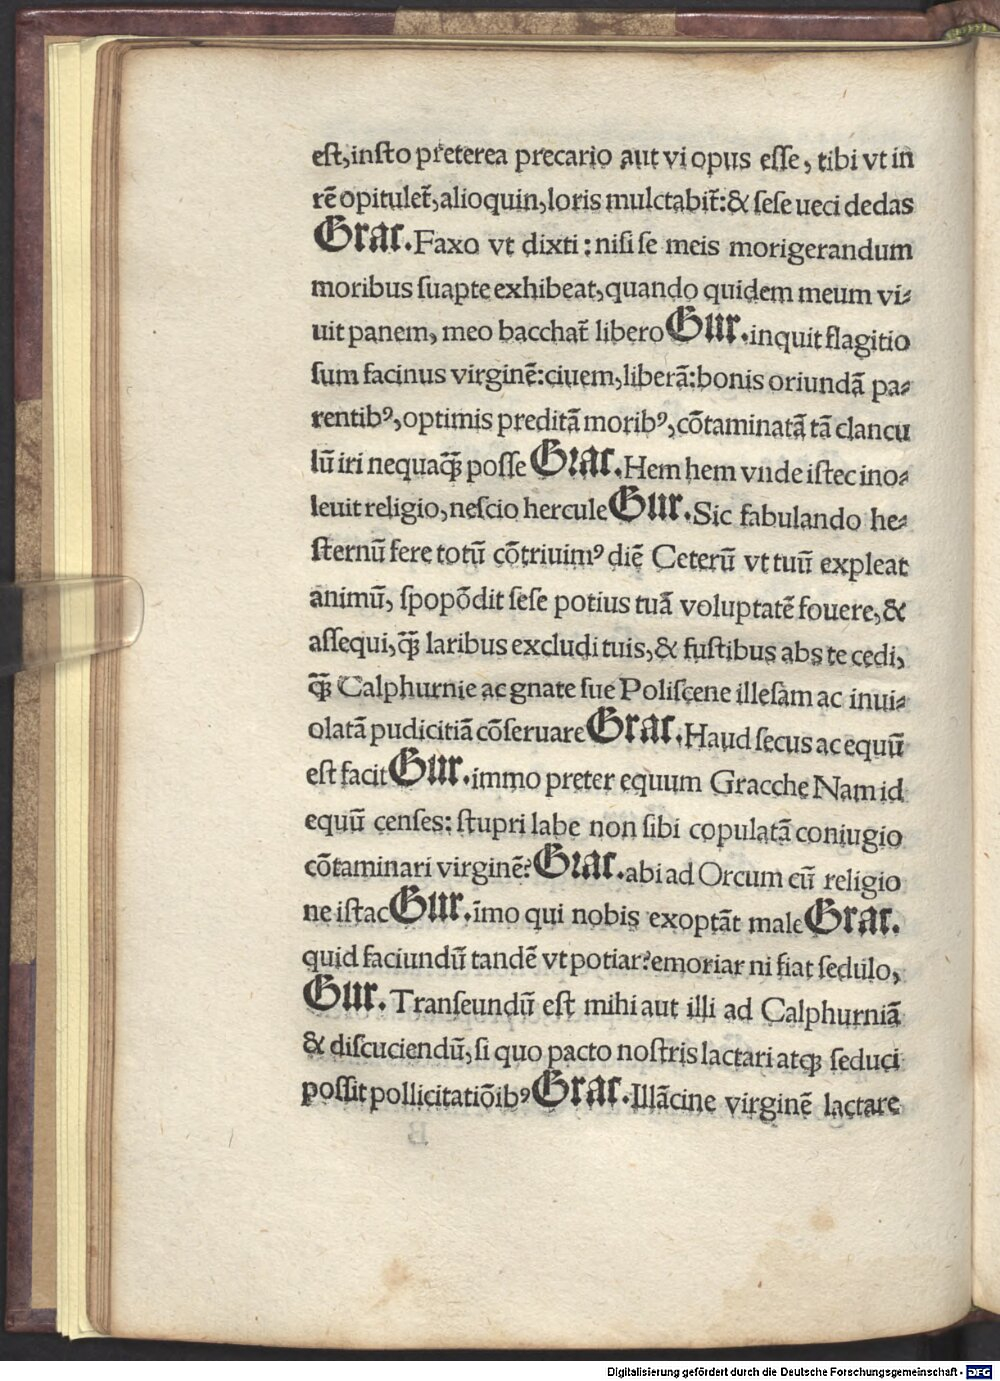 eſt,inſto pꝛeterea precario aut vi opus eſſe, tibi vt in
rē opitulet̄,alioquin,loris mulctabit̄:& ſeſe ueci dedas
Grac. Faxo vt dixti : niſi ſe meis morigerandum
moribus ſuapte exhibeat,quando quidem meum vi⸗
uit panem, meo bacchat̄ libero Gur. inquit flagitio
ſum facinus virginē:ciuem,liberā:bonis oriundā pa⸗
rentibꝰ,optimis preditā moribꝰ,cōtaminatā tā clancu
lū iri nequaq̄ꝫ poſſe Grac. Hem hem vnde iſtec ino⸗
leuit religio,neſcio hercule Gur. Sic fabulando he⸗
ſternū fere totū cōtriuimꝰ diē Ceterū vt tuū expleat
animū, ſpopōdit ſeſe potius tuā voluptatē fouere,&
aſſequi,q̄ꝫ laribus excludi tuis,& fuſtibus abs te cedi,
q̄ꝫ Calphurnie ac gnate ſue Poliſcene illeſam ac inui⸗
olatā pudicitiā cōſeruare Grac. Haud ſecus ac equū
eſt facit Gur. immo preter equum Gracche Nam id
equū cenſes: ſtupri labe non ſibi copulatā coniugio
cōtaminari virginē? Grac. abi ad Orcum cū religio
ne iſtac Gur. īmo qui nobis exoptāt male Grac.
quid faciundū tandē vt potiar?emoriar ni fiat ſedulo,
Gur. Tranſeundū eſt mihi aut illi ad Calphurniā
& diſcuciendū, ſi quo pacto noſtris lactari atqꝫ ſeduci
poſſit pollicitatiōibꝰ Grac. Illācine virginē lactare
Digitalisierung gefördert durch die Deutsche Forschungsgemeinschaft - DFG